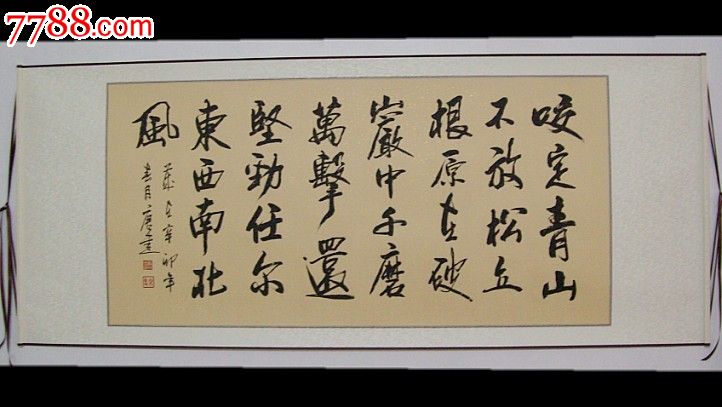 7788.com
中国收藏热线
咬定青山
不放松立
根原在破
巖中千磨
萬擊還
堅勁任尔
東西南北
風
歲在辛卯年
春月